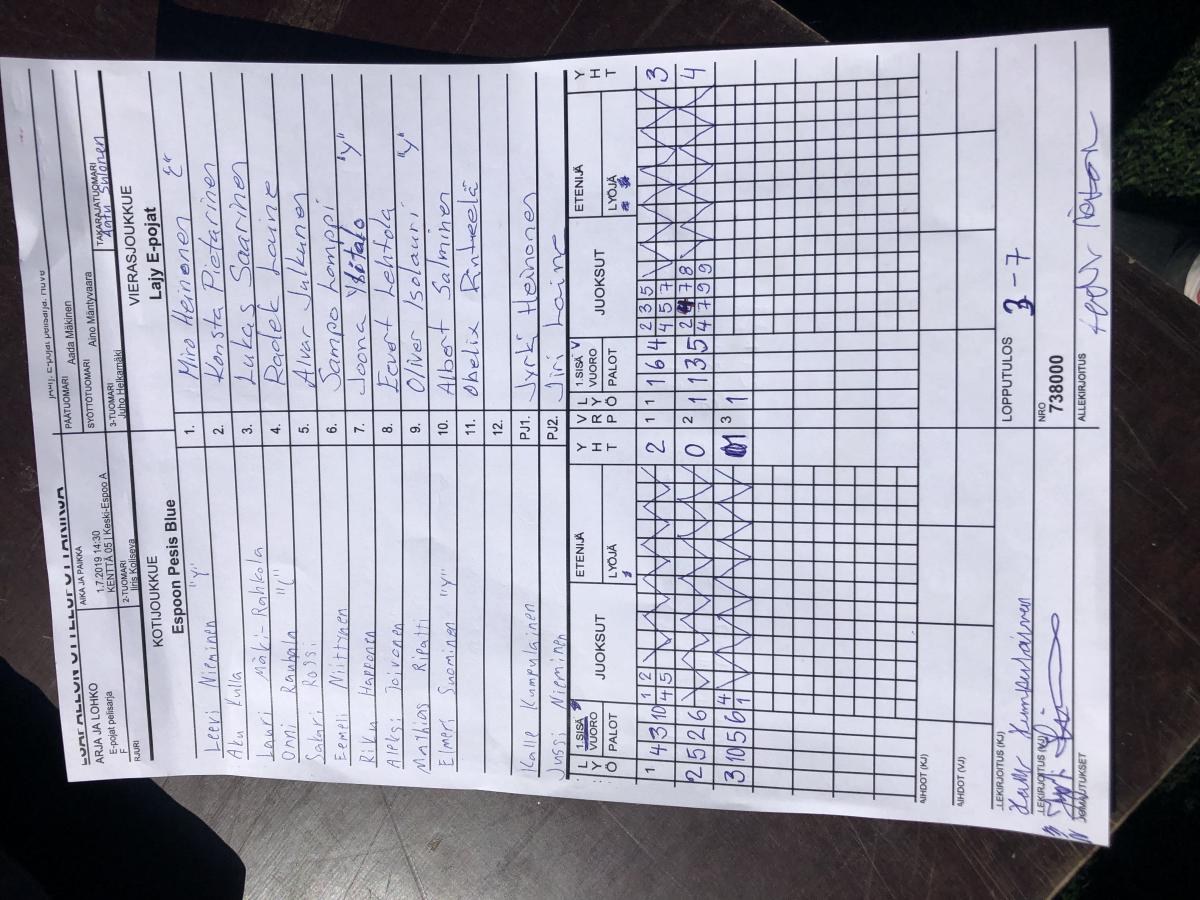 ARJA JA LOHKO
E-pojat pelisarja
F
RJURI
AIKA JA PAIKKA
1.7.2019 14:30
KENTTÄ 05 | Keski-Espoo A
2-TUOMARI
Iiris Koliseva
PÄÄTUOMARI Aada Mäkinen
SYÖTTÖTUOMARI Aino Mäntyvaara
3-TUOMARI
Juho Helkamäki
TAKARAJATUOMARI
KOTIJOUKKUE
Espoon Pesis Blue
VIERASJOUKKUE
Lajy E-pojat
Leevi Nieminen "Y" 1. Miro Heinonen
Aku Kulla 2. Konsta Pietarinen
Lauri Mäki-Rahkola 3. Lukas Saarinen
Onni Rauhala 4. Radek Laine
Sakari Rossi 5. Alvar Julkunen
Eemeli Niittynen 6. Sampo Lamppi
Riku Happonen 7. Joona Ylitalo "Y"
Aleksi Toivonen 8. Eevert Lehtola
Mathias Ripatti 9. Oliver Isolauri "Y"
Elmeri Suominen "Y" 10. Albert Salminen
11. Obelix Rinteelä
12.
Kalle Kumpulainen PJ1. Jyrki Heinonen
Jussi Nieminen PJ2. Jiri Laine
L Y Ö 1.SISÄ VUORO PALOT JUOKSUT ETENIJÄ LYÖJÄ Y H T V R P L Y Ö 1.SISÄ V VUORO PALOT JUOKSUT ETENIJÄ LYÖJÄ Y H T
1 4 3 10 1 2 2 1 1 1 6 4 2 3 5 3
4 5 4 5 7
2 5 2 6 0 2 1 1 3 5 2 4 7 8 4
4 7 9 9
3 10 5 6 4 1 3 1
1
AIHDOT (KJ)
AIHDOT (VJ)
LEKIRJOITUS (KJ)
LOPPUTULOS 3 - 7
Kalle Kumpulainen
LEKIRJOITUS (VJ)
NRO
738000
ALLEKIRJOITUS